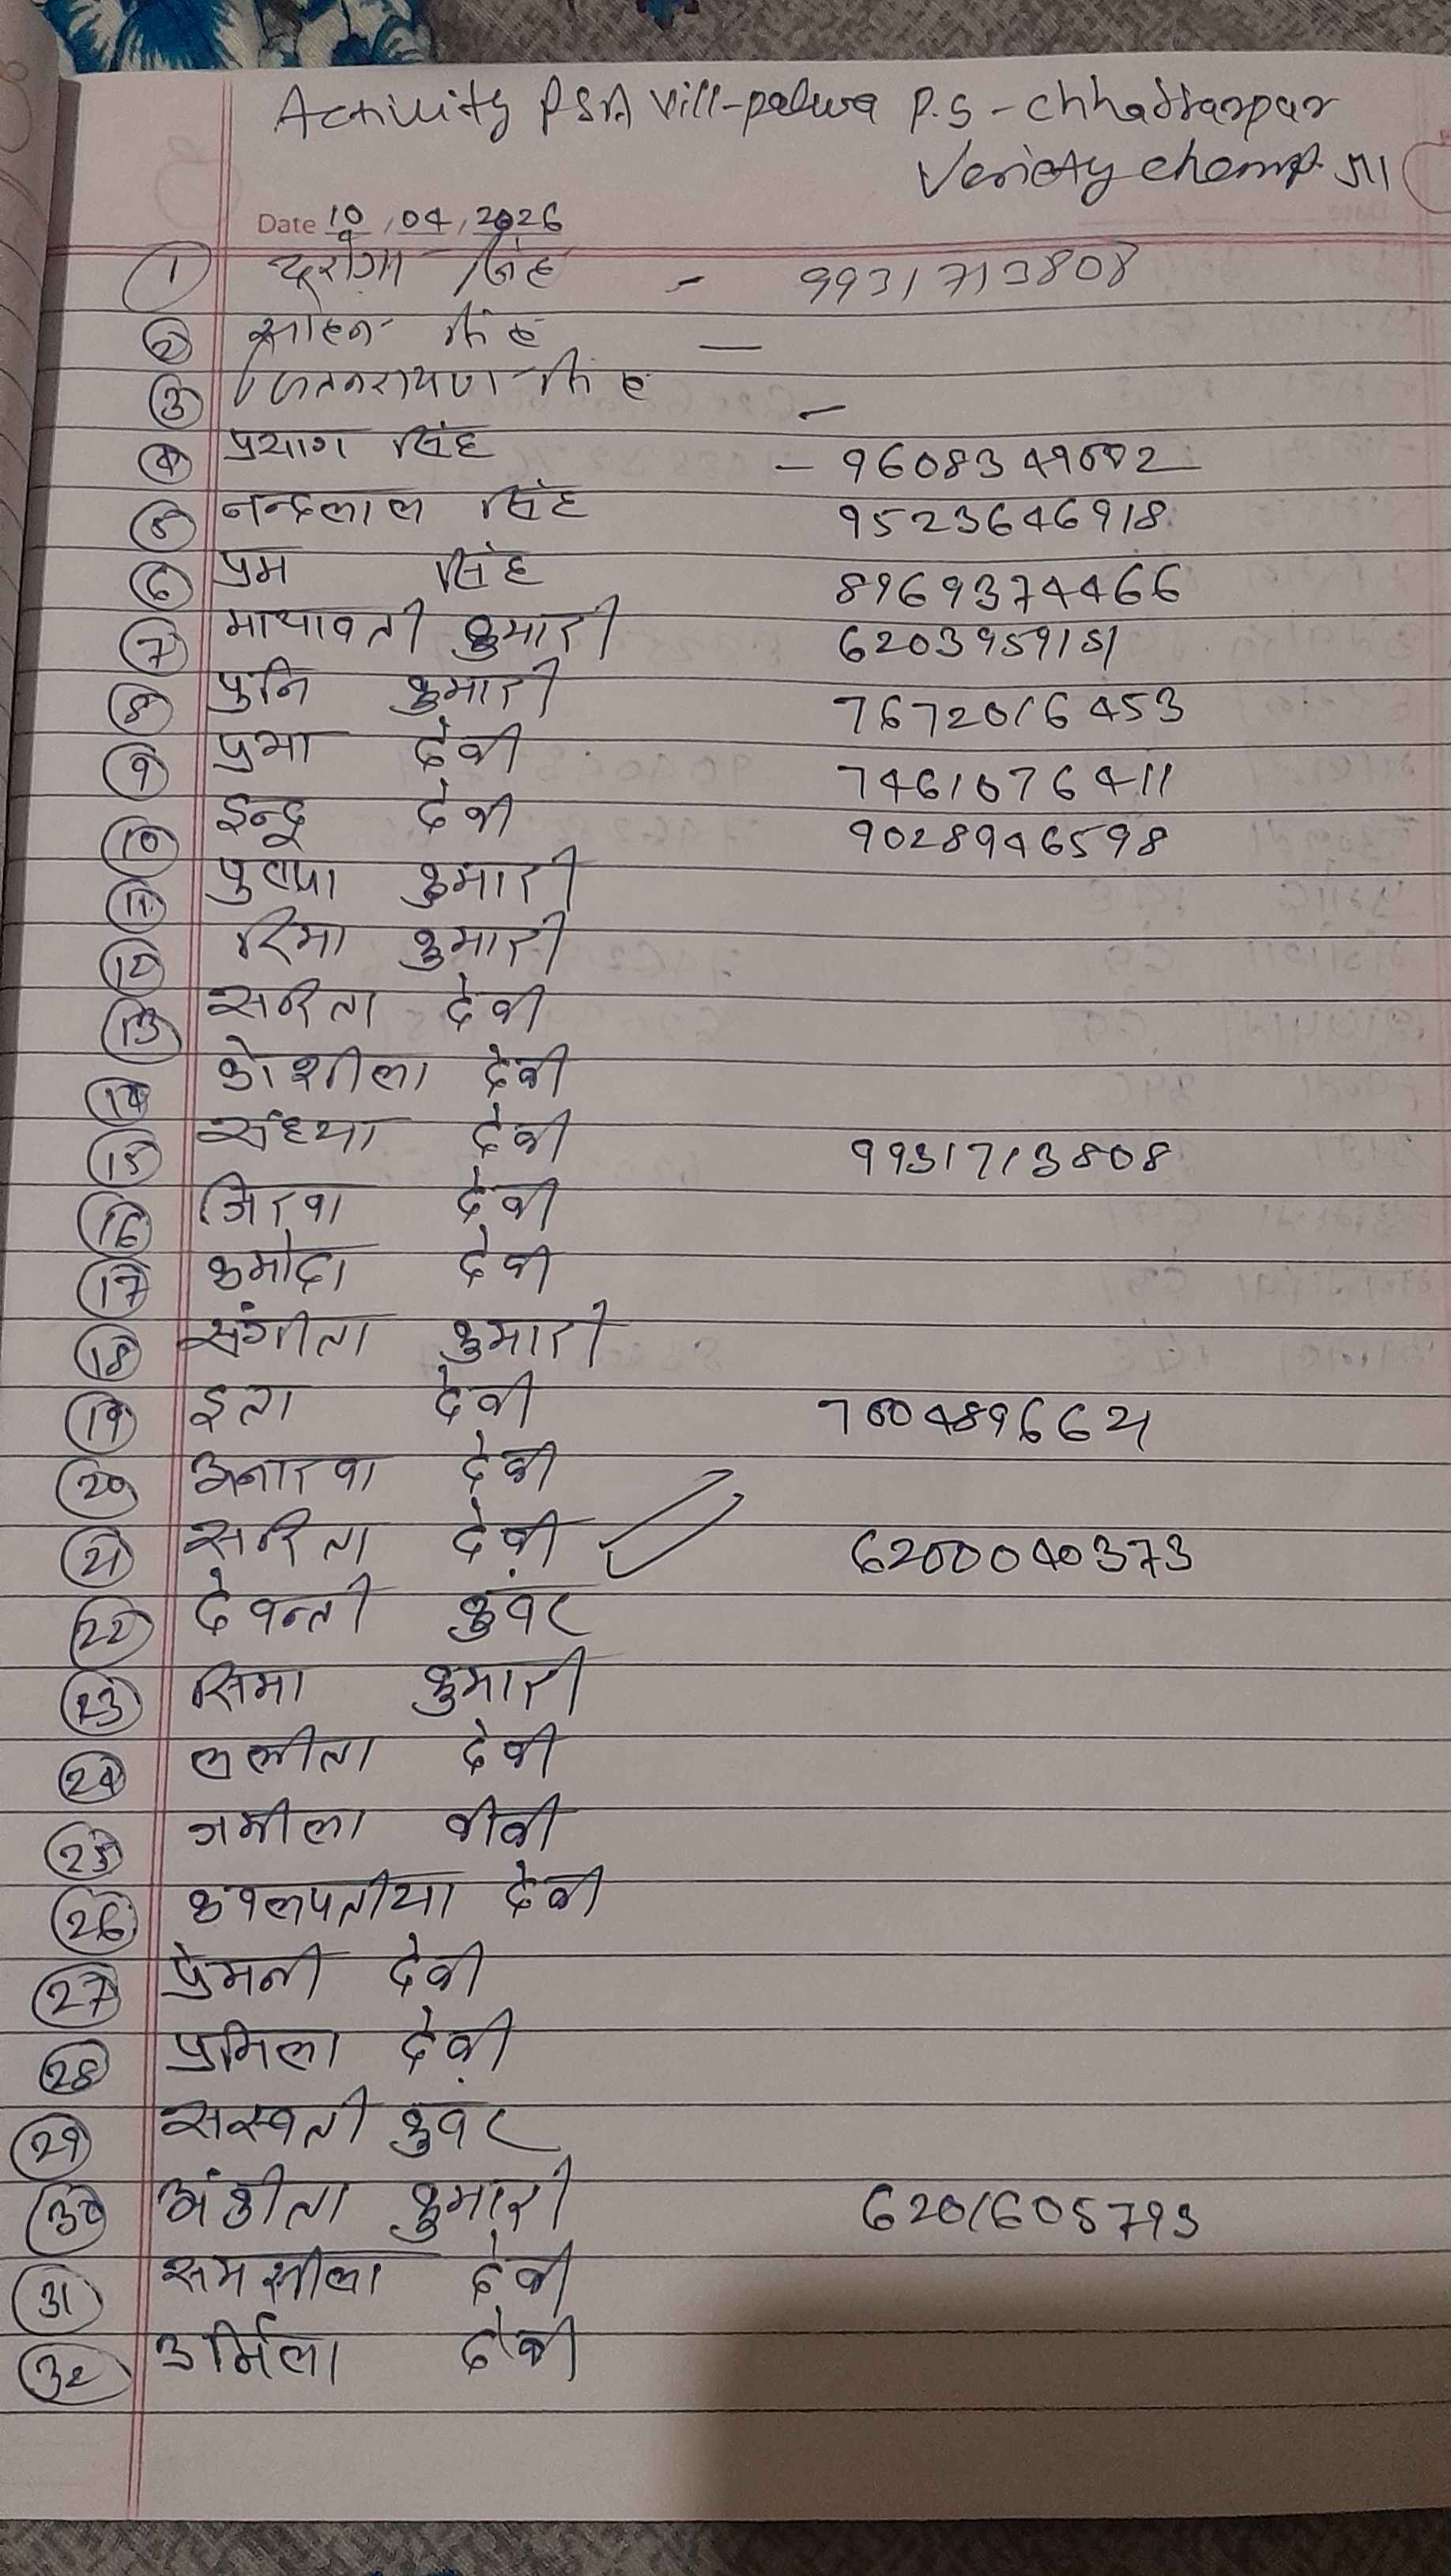 Activity PSA Vill-palwa P.S - chhattarpur
Veriety champ
Date 10, 04, 2026
1 दरोगा सिंह - 9931713808
2 सोहन सिंह —
3 सिंह —
4 प्रयाग सिंह - 9608349002
5 नन्दलाल सिंह 9523646918
6 प्रेम सिंह 8969374466
7 मायावती कुमारी 6203959151
8 पुनि कुमारी 7672016453
9 प्रभा देवी 7461076411
10 इन्दू देवी 9028946598
11 पुष्पा कुमारी
12 रिमा कुमारी
13 सरिता देवी
14 कोशीला देवी
15 संध्या देवी 9931713808
16 जिरवा देवी
17 कमोदा देवी
18 संगीता कुमारी
19 इता देवी
20 अनारवा देवी
21 सरिता देवी 6200040373
22 देवन्ती कुवंर
23 सिमा कुमारी
24 ललीता देवी
25 जमीला बीबी
26 देवी
27 प्रेमनी देवी
28 प्रमिला देवी
29 सस्वती कुवंर
30 अंकीता कुमारी 6201605793
31 रामशीला देवी
32 उर्मिला देवी